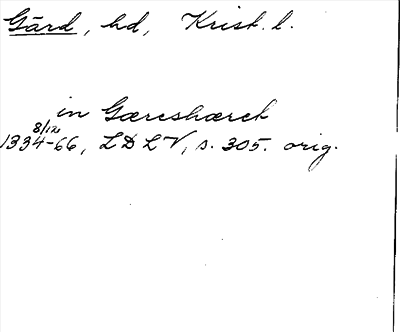 Gärd, hd, Krist. l.
in Gæreshæreth
8/12
1334-66, LDLV, s. 305. orig.